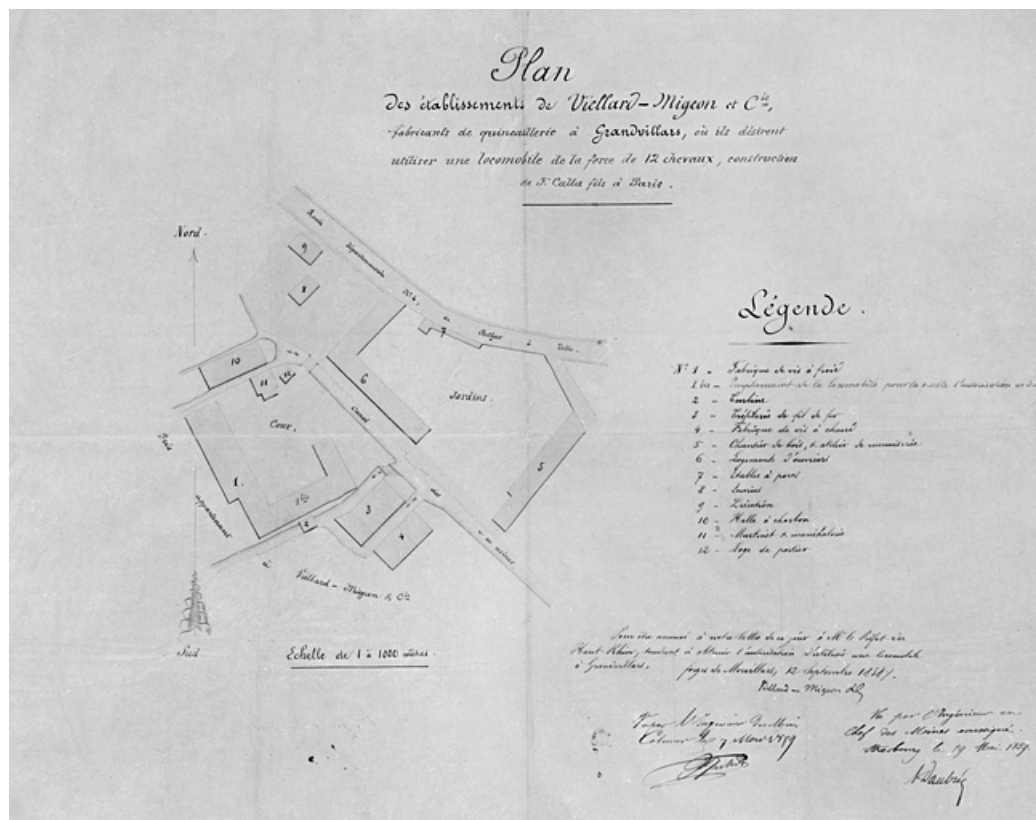 Plan
Des établissements de Viellard-Migeon et Cie,
fabricants de quincaillerie à Grandvillars, où ils désirent
utiliser une locomobile de la force de 12 chevaux, construction
de F. Calla fils à Paris.
Nord.
Route Départementale No 4, de Belfort à Delle.
9
8
10
11
12
6
7
Jardins.
Canal des usines
Cour.
5
1.
1 bis
2
3
4
Prés appartenant à Viellard-Migeon & Cie
Sud
Echelle de 1 à 1000 mètres.
Légende.
No 1 - Fabrique de vis à froid
1 bis - Emplacement de la locomobile pour laquelle l'autorisation
2 - Turbine
3 - Tréfilerie de fil de fer
4 - Fabrique de vis à chaud
5 - Chantier de bois, & atelier de menuiserie
6 - Logements d'ouvriers
7 - Etables à porcs
8 - Ecuries
9 - 
10 - Halle à charbon
11 - Martinet & maréchalerie
12 - Loge de portier
Pour être annexé à notre lettre de ce jour à Mr le Préfet du
Haut-Rhin, tendant à obtenir l'autorisation d'utiliser une locomobile
à Grandvillars. forges de Morvillars, 12 Septembre 1858.
Viellard-Migeon & Cie
Vu par l'Ingénieur des Mines
Colmar le 7 Mars 1859
Vu par l'Ingénieur en
Chef des Mines soussigné.
Strasbourg le 19 Mai 1859.
Daubrée